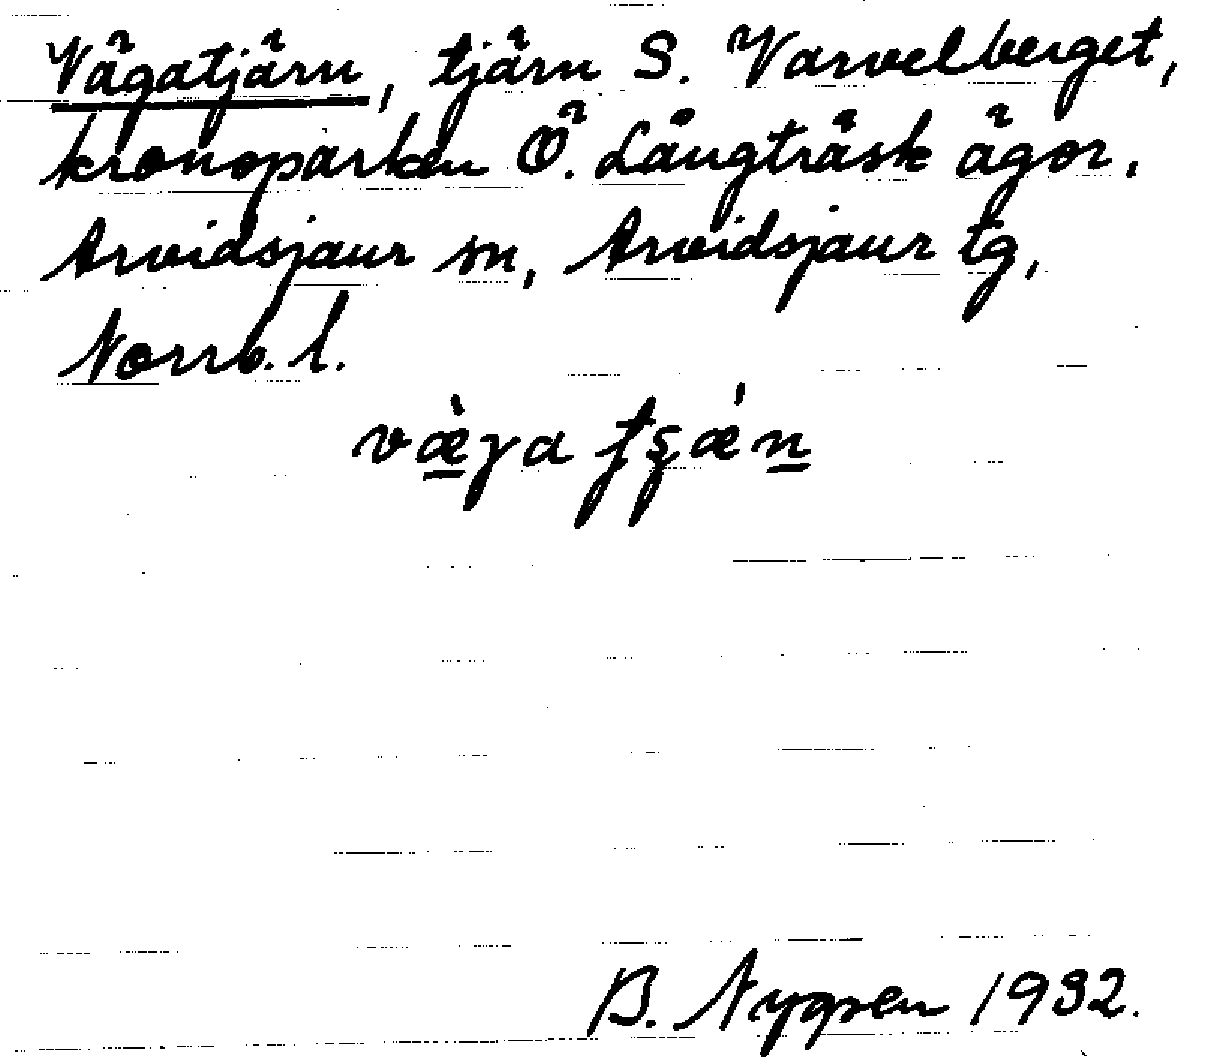 Vägatjärn, tjärn S. Varvelberget,
kronoparken Ö. Långträsk ägor,
Arvidsjaur sn, Arvidsjaur tg,
Norrb. l.
B. Nygren 1932.